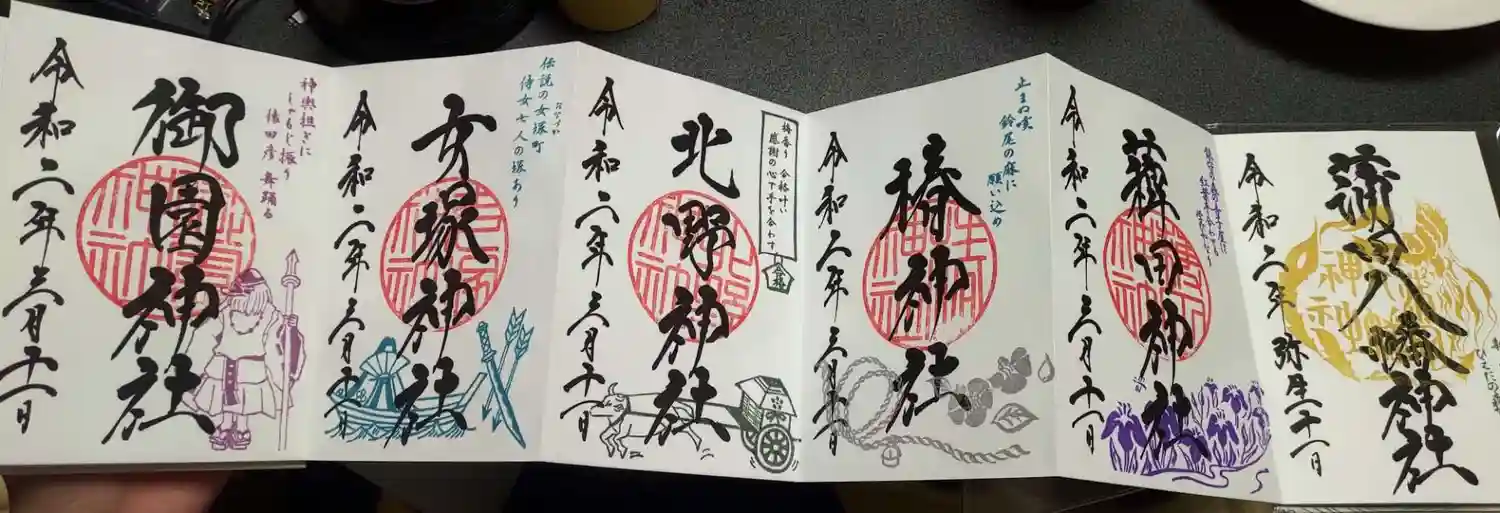 神輿担ぎに
しゃもじ振り
猿田彦 舞踊る
御園神社
令和二年三月二十一日
伝説の女塚町
おなづか
侍女七人の塚あり
女塚神社
令和二年三月二十一日
梅香り 合格叶い
感謝の心で手を合わす
合格
北野神社
令和二年三月二十一日
止まぬ咳
鈴尾の麻に
願い込め
椿神社
令和二年三月二十一日
薭田神社
令和二年三月二十一日
蒲田八幡神社
令和二年 弥生二十一日